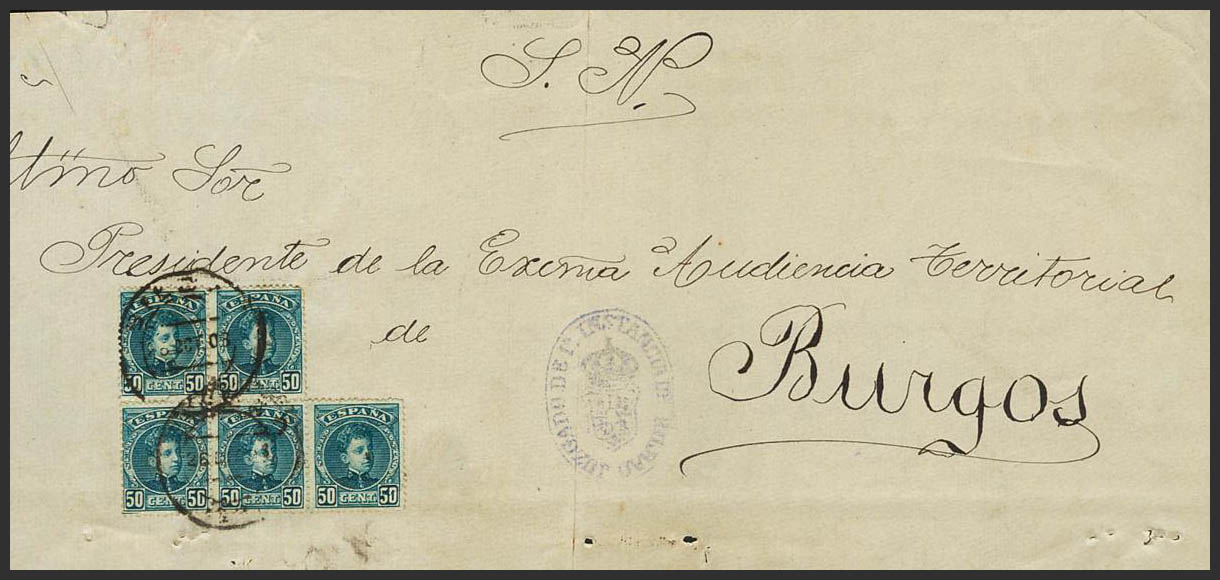 S. N.
Presidente de la Excma Audiencia Territorial
de
Burgos
JUZGADO DE 1ª INSTANCIA DE
ESPAÑA
50 CENT. 50
ESPAÑA
50 CENT. 50
ESPAÑA
50 CENT. 50
ESPAÑA
50 CENT. 50
ESPAÑA
50 CENT. 50